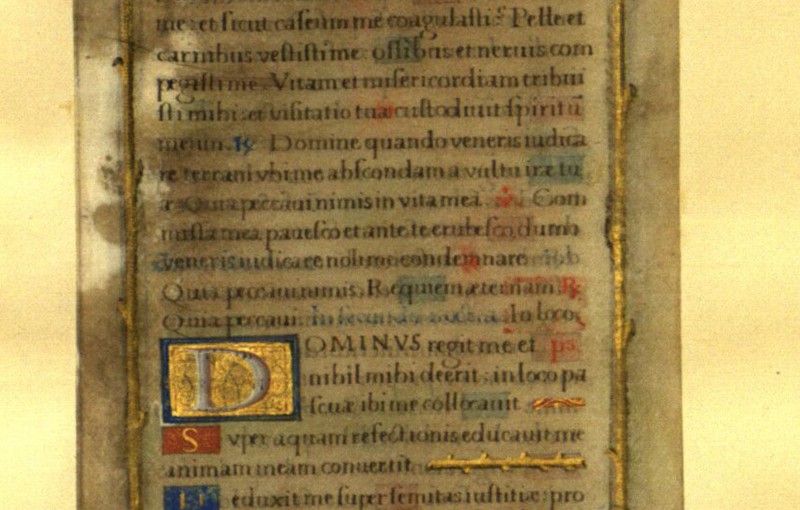 me: et sicut caseum me coagulasti? Pelle et
carnibus vestisti me: ossibus et neruis com
pegisti me. Vitam et misericordiam tribui
sti mihi: et visitatio tua custodiuit spiritū
meum. ℟ Domine quando veneris iudica
re terram vbi me abscondam a vultu iræ tu
æ Quia peccaui nimis in vita mea. Com
missa mea pauesco et ante te erubesco, dum
veneris iudicare noli me condemnare
Quia peccaui nimis. Requiem æternam. ℟.
Quia peccaui. In loco,
DOMINVS regit me et ps.
nihil mihi deerit: in loco pa
scuæ ibi me collocauit
Super aquam refectionis educauit me
animam meam conuertit
eduxit me super semitas iustitiæ: pro